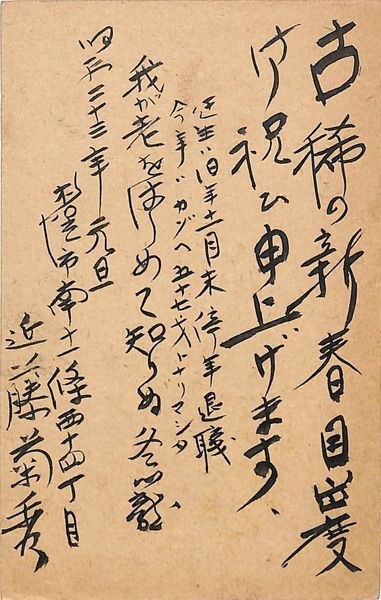 古稀の新春目出度
御祝ひ申上げます、
小生ハ旧年十二月末停年退職
今年ガカゾへ五十七才トナリマシタ
我が老をはじめて知りぬ冬
昭和二十三年 元旦
市南十一條西十四丁目
近藤菊秀